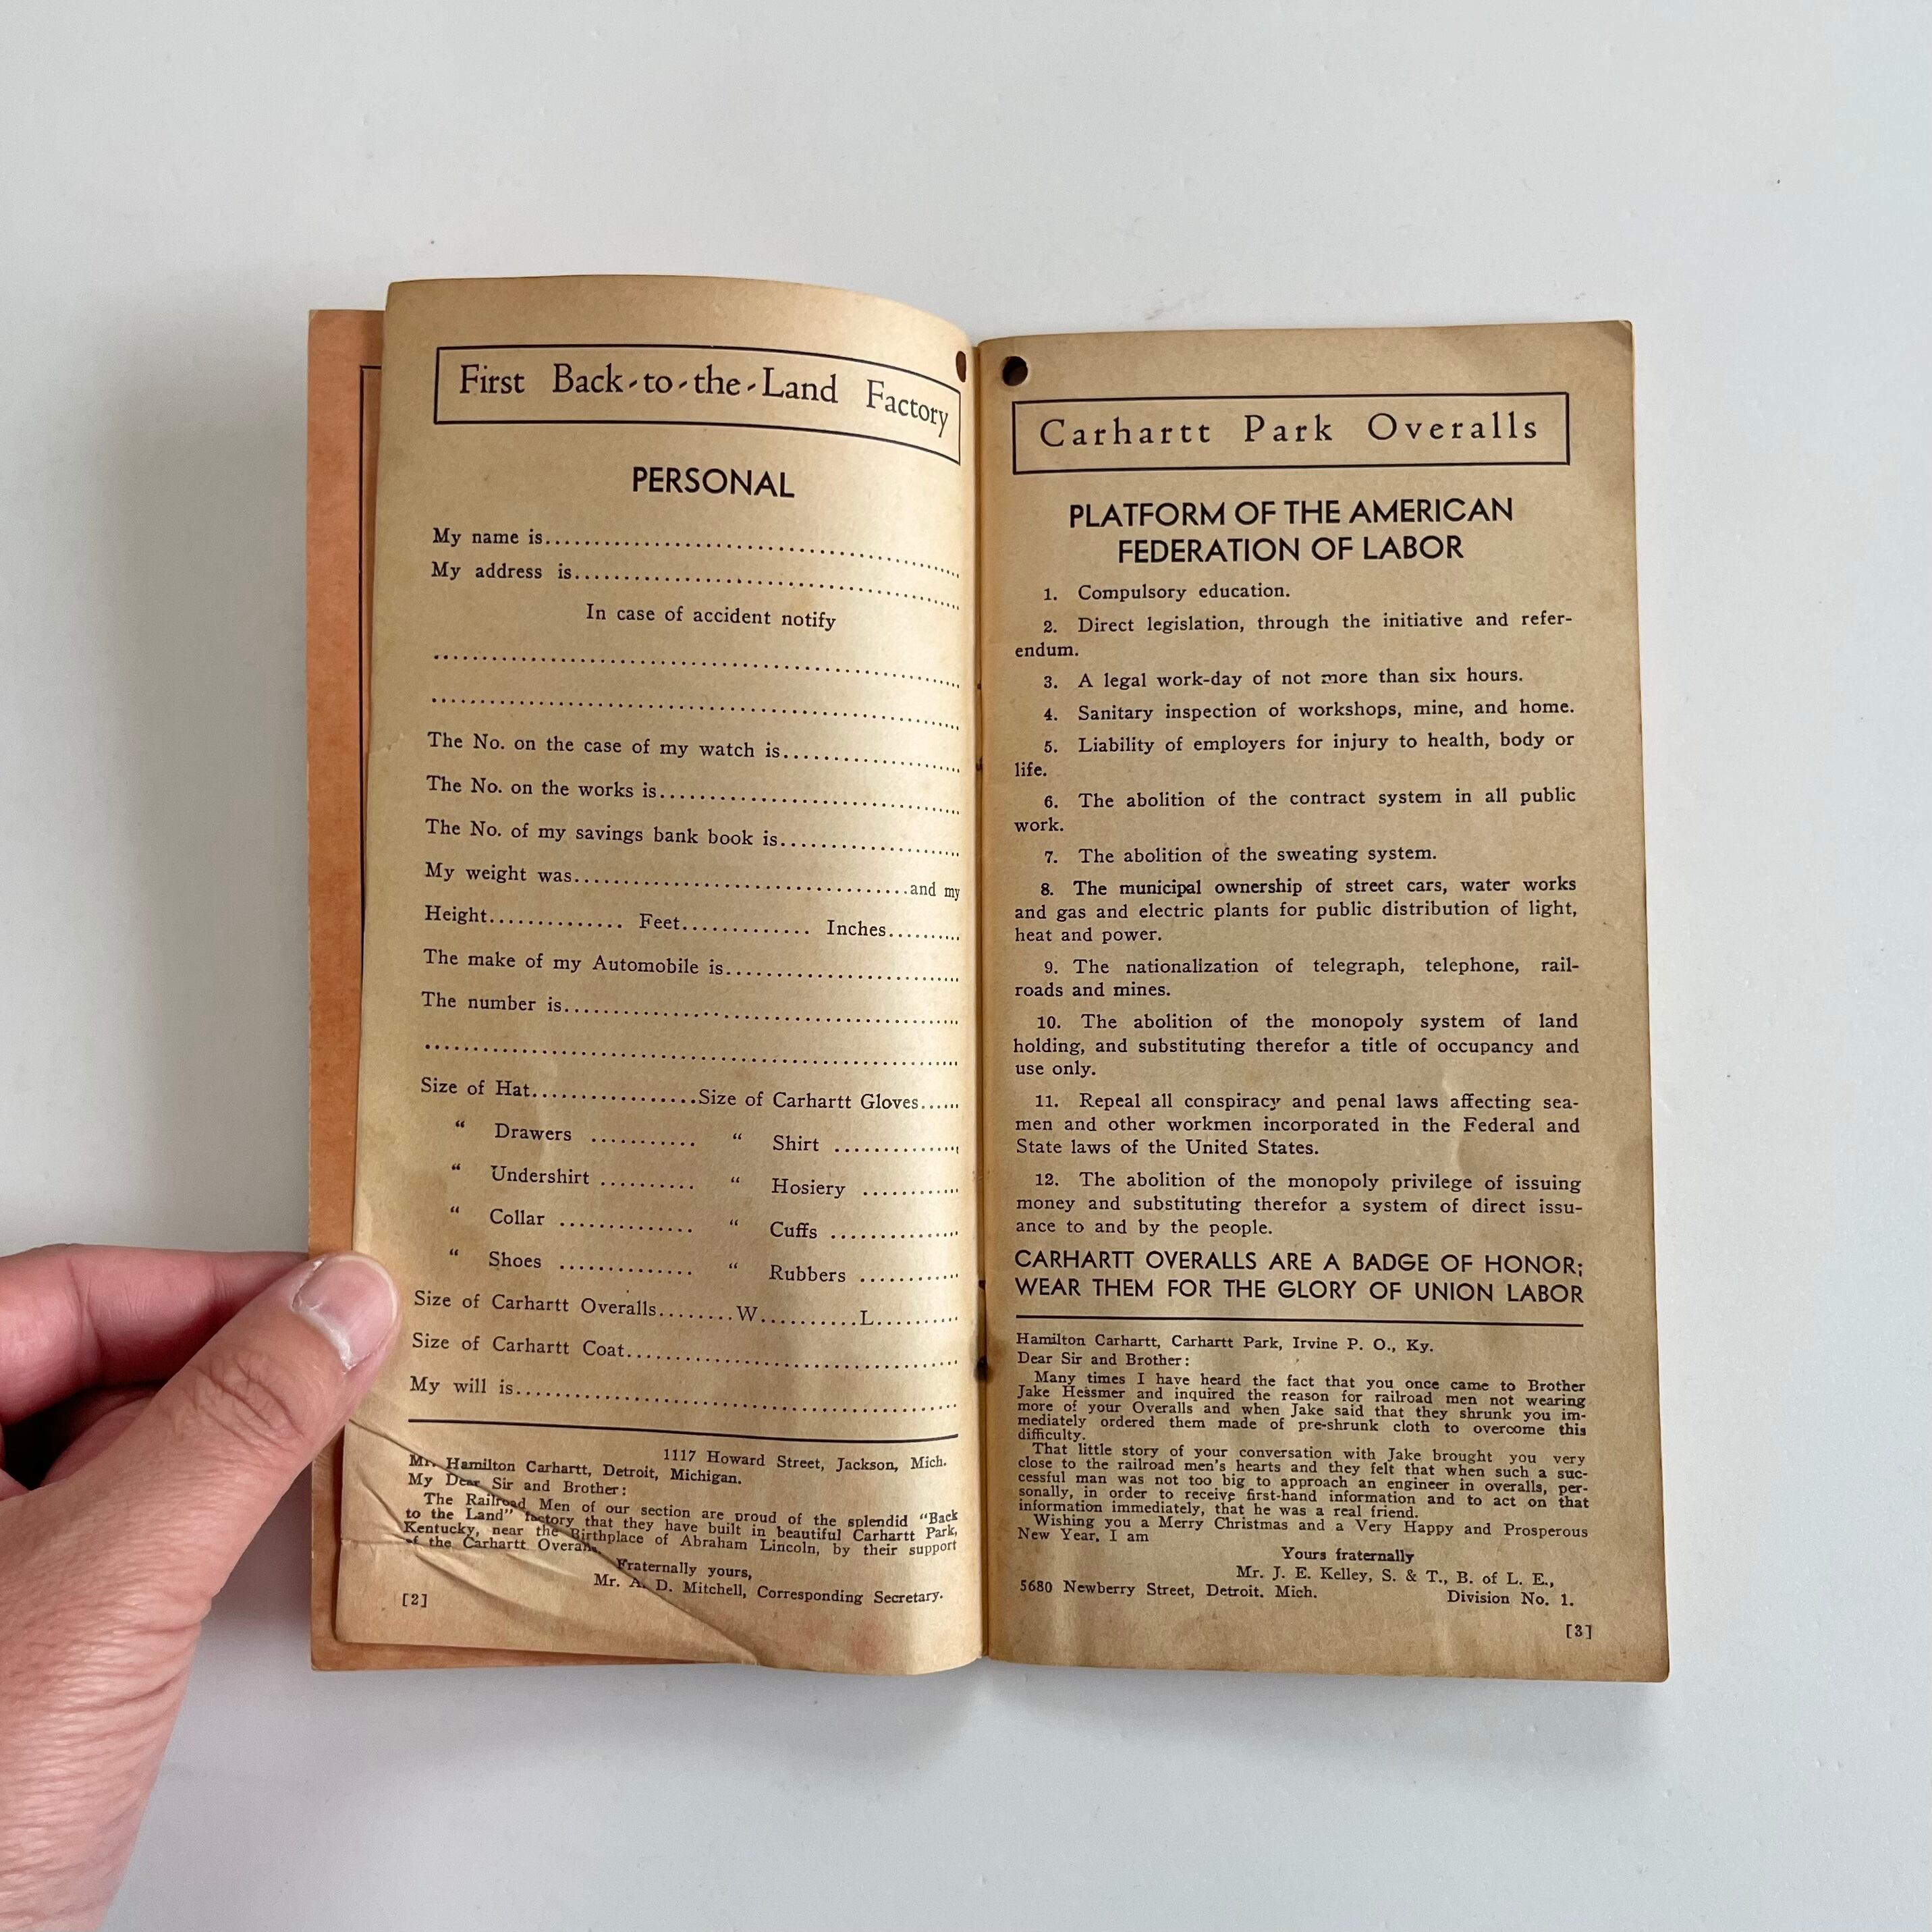 First Back-to-the-Land Factory
PERSONAL
My name is
My address is
In case of accident notify
The No. on the case of my watch is
The No. on the works is
The No. of my savings bank book is
My weight was and my
Height Feet Inches
The make of my Automobile is
The number is
Size of Hat Size of Carhartt Gloves
“ Drawers “ Shirt
“ Undershirt “ Hosiery
“ Collar “ Cuffs
“ Shoes “ Rubbers
Size of Carhartt Overalls W L
Size of Carhartt Coat
My will is
1117 Howard Street, Jackson, Mich.
Mr. Hamilton Carhartt, Detroit, Michigan.
My Dear Sir and Brother:
The Railroad Men of our section are proud of the splendid “Back
to the Land” factory that they have built in beautiful Carhartt Park,
Kentucky, near the Birthplace of Abraham Lincoln, by their support
of the Carhartt Overalls.
Fraternally yours,
Mr. A. D. Mitchell, Corresponding Secretary.
[2]
Carhartt Park Overalls
PLATFORM OF THE AMERICAN
FEDERATION OF LABOR
1. Compulsory education.
2. Direct legislation, through the initiative and refer-
endum.
3. A legal work-day of not more than six hours.
4. Sanitary inspection of workshops, mine, and home.
5. Liability of employers for injury to health, body or
life.
6. The abolition of the contract system in all public
work.
7. The abolition of the sweating system.
8. The municipal ownership of street cars, water works
and gas and electric plants for public distribution of light,
heat and power.
9. The nationalization of telegraph, telephone, rail-
roads and mines.
10. The abolition of the monopoly system of land
holding, and substituting therefor a title of occupancy and
use only.
11. Repeal all conspiracy and penal laws affecting sea-
men and other workmen incorporated in the Federal and
State laws of the United States.
12. The abolition of the monopoly privilege of issuing
money and substituting therefor a system of direct issu-
ance to and by the people.
CARHARTT OVERALLS ARE A BADGE OF HONOR;
WEAR THEM FOR THE GLORY OF UNION LABOR
Hamilton Carhartt, Carhartt Park, Irvine P. O., Ky.
Dear Sir and Brother:
Many times I have heard the fact that you once came to Brother
Jake Hessmer and inquired the reason for railroad men not wearing
more of your Overalls and when Jake said that they shrunk you im-
mediately ordered them made of pre-shrunk cloth to overcome this
difficulty.
That little story of your conversation with Jake brought you very
close to the railroad men's hearts and they felt that when such a suc-
cessful man was not too big to approach an engineer in overalls, per-
sonally, in order to receive first-hand information and to act on that
information immediately, that he was a real friend.
Wishing you a Merry Christmas and a Very Happy and Prosperous
New Year, I am
Yours fraternally
Mr. J. E. Kelley, S. & T., B. of L. E.,
5680 Newberry Street, Detroit. Mich. Division No. 1.
[3]